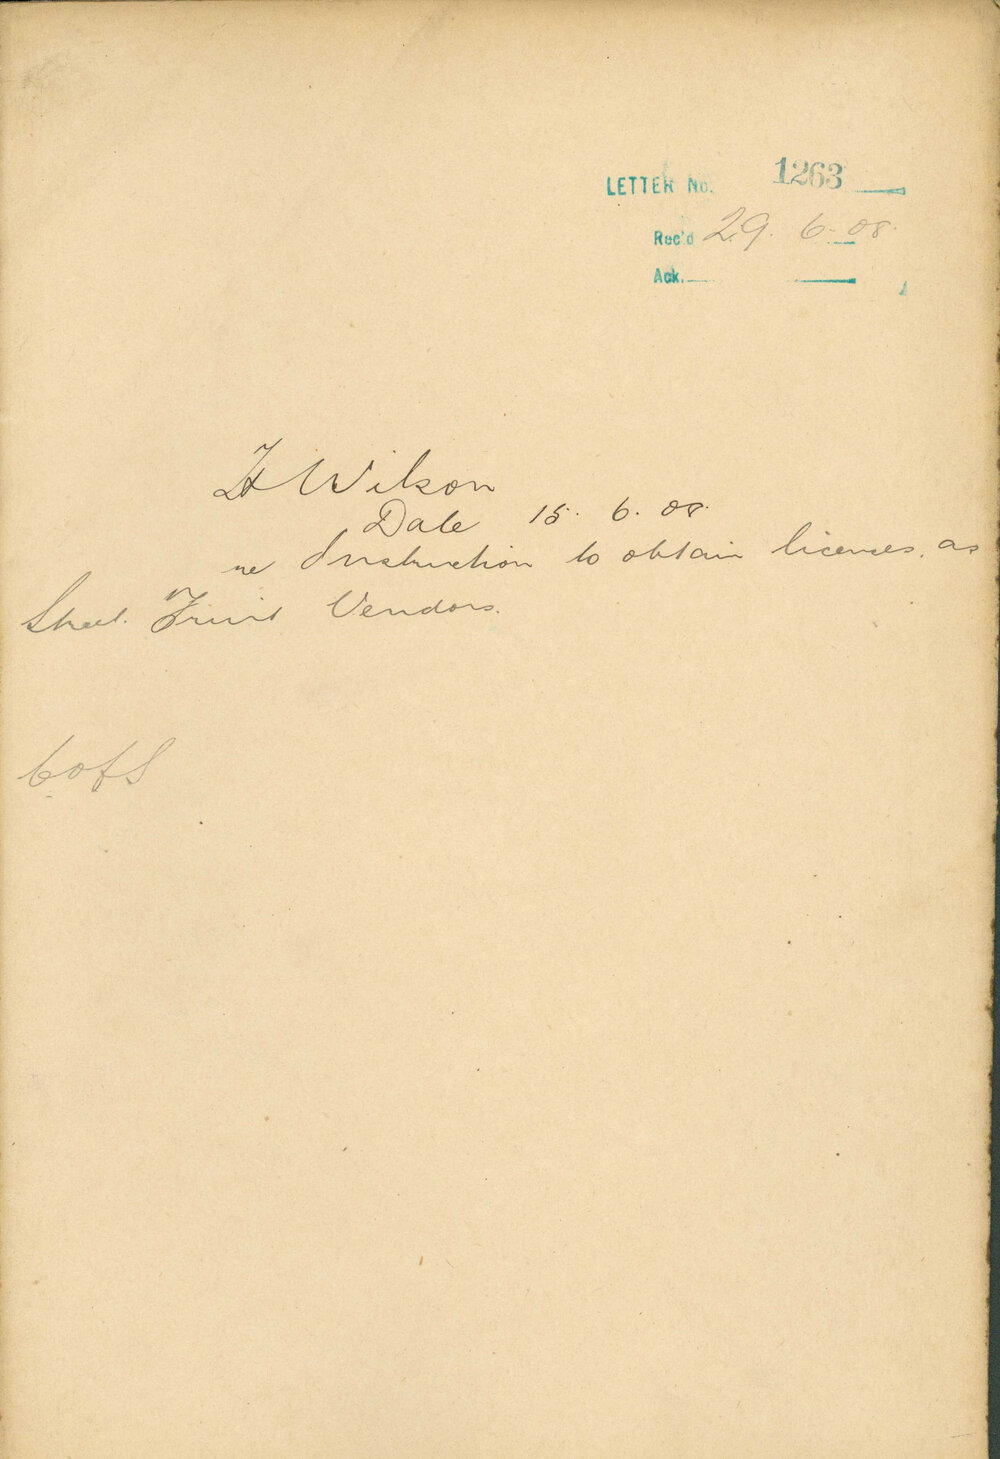 LETTER No. 1263
Rec'd 29. 6. 08.
Ack.
H Wilson
Date 15. 6. 08.
re Instruction to obtain licenses, as
Street Fruit Vendors.
C of S